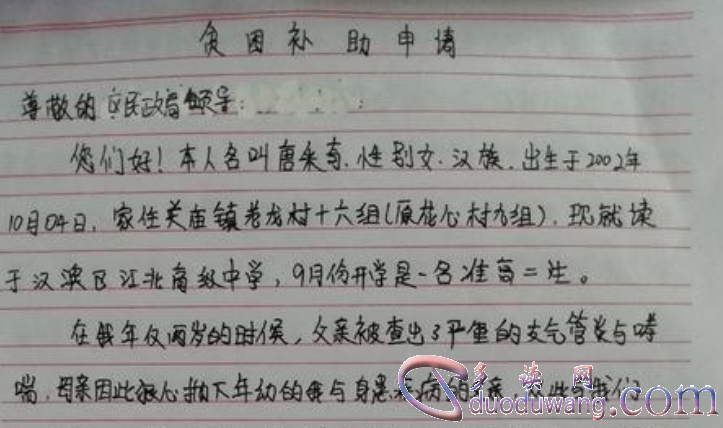 贫困补助申请
尊敬的区民政局领导:
您们好!本人名叫唐采奇.性别女.汉族.出生于2002年
10月04日.家住关庙镇老龙村十六组(原花心村九组).现就读
于汉滨区江北高级中学,9月份开学是一名准高二生。
在我年仅两岁的时候,父亲被查出了严重的支气管炎与哮
喘.母亲因此狠心抛下年幼的我与身患疾病的父亲.从此与我们
多读网
duoduwang.com